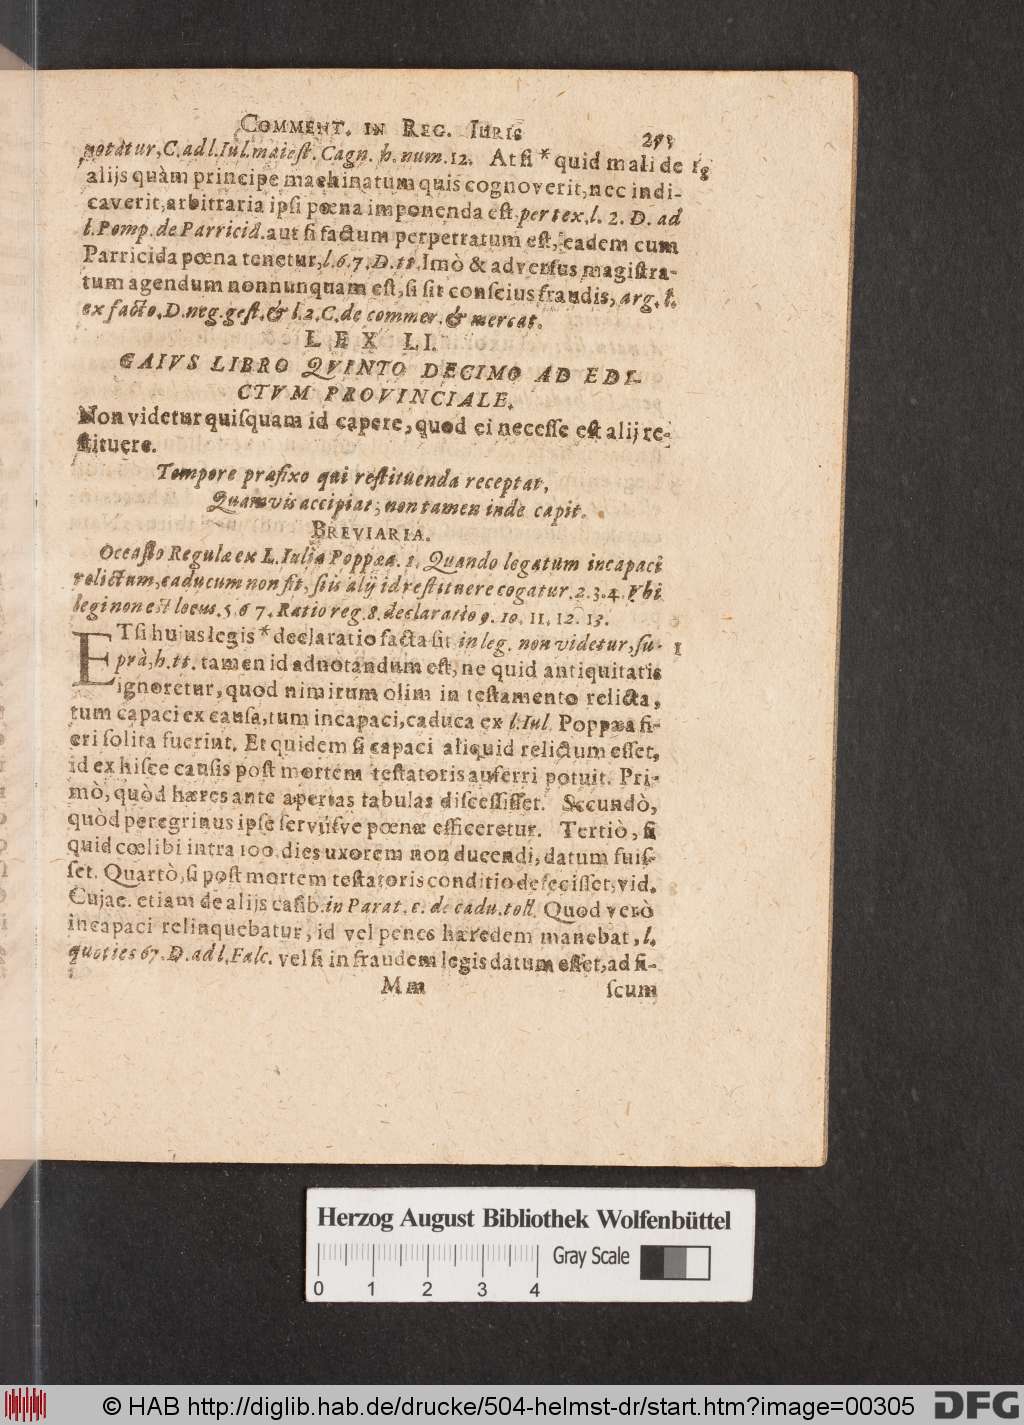 COMMENT. IN REG. IURIS
notatur, C. ad l. Iul. maiest. Cagn. h. num. 12. At si * quid mali de
alijs quàm principe machinatum quis cognoverit, nec indi-
caverit, arbitraria ipsi pœna imponenda est. per tex. l. 2. D. ad
l. Pomp. de Parricid. aut si factum perpetratum est, eadem cum
Parricida pœna tenetur, l. 6. 7. D. tt. Imò & adversus magistra-
tum agendum nonnunquam est, si sit conscius fraudis, arg. l.
ex facto. D. neg. gest. & l. 2. C. de commer. & mercat.
LEX LI.
GAIVS LIBRO QVINTO DECIMO AD EDI-
CTVM PROVINCIALE.
Non videtur quisquam id capere, quod ei necesse est alij re-
stituere.
Tempore præfixo qui restituenda receptat,
Quamvis accipiat; non tamen inde capit.
BREVIARIA.
Occasio Regulæ ex L. Iulia Poppæa. 1. Quando legatum incapaci
relictum, caducum non fit, si is alij id restituere cogatur. 2. 3. 4. Vbi
legi non est locus. 5. 6 7. Ratio reg. 8. declaratio 9. 10. 11. 12. 13.
ETsi hujus legis * declaratio facta sit in leg. non videtur, su- 1
prà, h. tt. tamen id adnotandum est, ne quid antiquitatis
ignoretur, quod nimirum olim in testamento relicta,
tum capaci ex causa, tum incapaci, caduca ex l. Iul. Poppæa fi-
eri solita fuerint. Et quidem si capaci aliquid relictum esset,
id ex hisce causis post mortem testatoris auferri potuit. Pri-
mò, quòd hæres ante apertas tabulas discessisset. Secundò,
quòd peregrinus ipse servúsve pœnæ efficeretur. Tertiò, si
quid cœlibi intra 100. dies uxorem non ducendi, datum fuis-
set. Quartò, si post mortem testatoris conditio defecisset, vid.
Cujac. etiam de alijs casib. in Parat. c. de cadu. toll. Quod verò
incapaci relinquebatur, id vel penes hæredem manebat, l.
quoties 67. D. ad l. Falc. vel si in fraudem legis datum esset, ad fi-
Mm scum
Herzog August Bibliothek Wolfenbüttel
Gray Scale
0 1 2 3 4
© HAB http://diglib.hab.de/drucke/504-helmst-dr/start.htm?image=00305
DFG